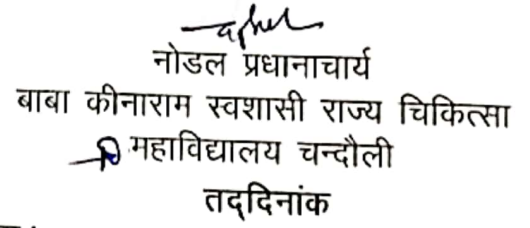 नोडल प्रधानाचार्य
बाबा कीनाराम स्वशासी राज्य चिकित्सा
महाविद्यालय चन्दौली
तद्दिनांक